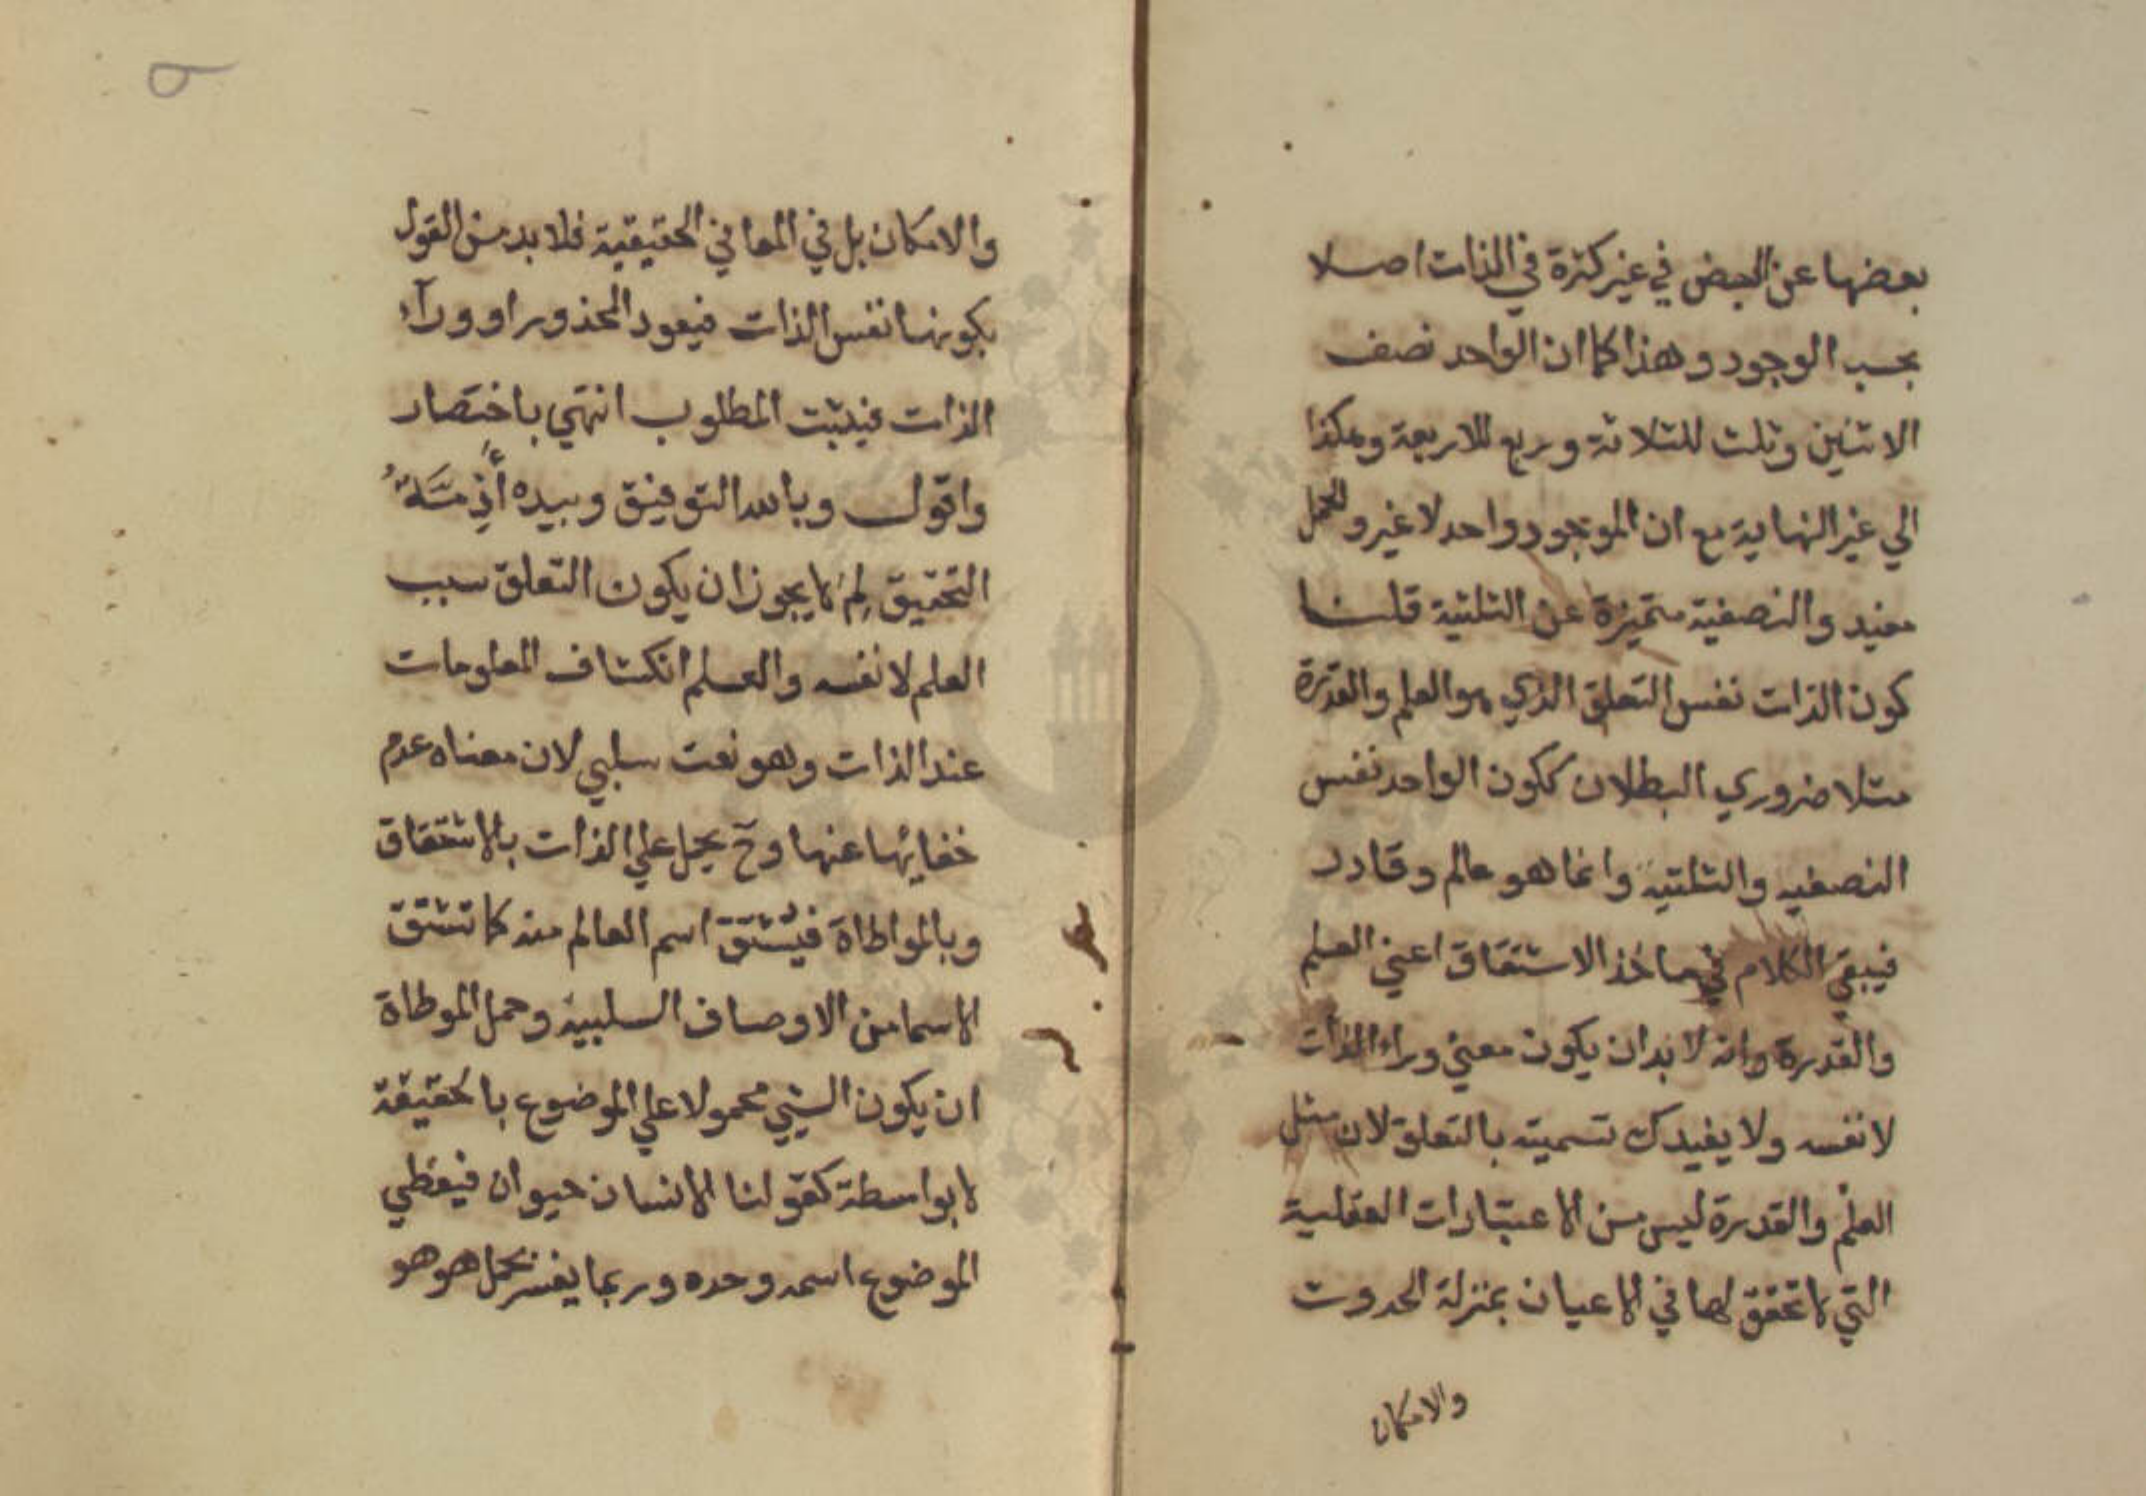 بعضها عن البعض في غير كثرة في الذات اصلا
بحسب الوجود وهذا كما ان الواحد نصف
الاثنين وثلث للثلاثة وربع للاربعة وهكذا
الي غير النهاية مع ان الموجود واحد لا غير والحمل
مفيد والنصفية متميزة عن الثلثية قلنا
كون الذات نفس التعلق الذي هو العلم والقدرة
مثلا ضروري البطلان ككون الواحد نفس
النصفيه والثلثية وانما هو عالم وقادر
فيبقي الكلام في ماخذ الاشتقاق اعني العلم
والقدرة وانه لا بد ان يكون معني وراء الذات
لا نفسه ولا يفيدك تسميته بالتعلق لان مثل
العلم والقدرة ليس من الاعتبارات العقلية
التي لا تحقق لها في الاعيان بمنزلة الحدوث
والامكان
والامكان بل في المعاني الحقيقية فلا بد من القول
بكونها نفس الذات فيعود المحذور او ورآء
الذات فيثبت المطلوب انتهي باختصار
واقول وبالله التوفيق وبيده أزمّة
التحقيق لِمَ لا يجوز ان يكون التعلق سبب
العلم لا نفسه والعلم انكشاف المعلومات
عند الذات وهو نعت سلبي لان معناه عدم
خفايها عنها وح يحمل علي الذات بالاشتقاق
وبالمواطاة فيشتق اسم العالم منه كما تشتق
الاسما من الاوصاف السلبية وحمل الموطاة
ان يكون الشيي محمولا علي الموضوع بالحقيقة
لا بواسطة كقولنا الانسان حيوان فيعطي
الموضوع اسمه وحده وربما يفسر بحمل هو هو